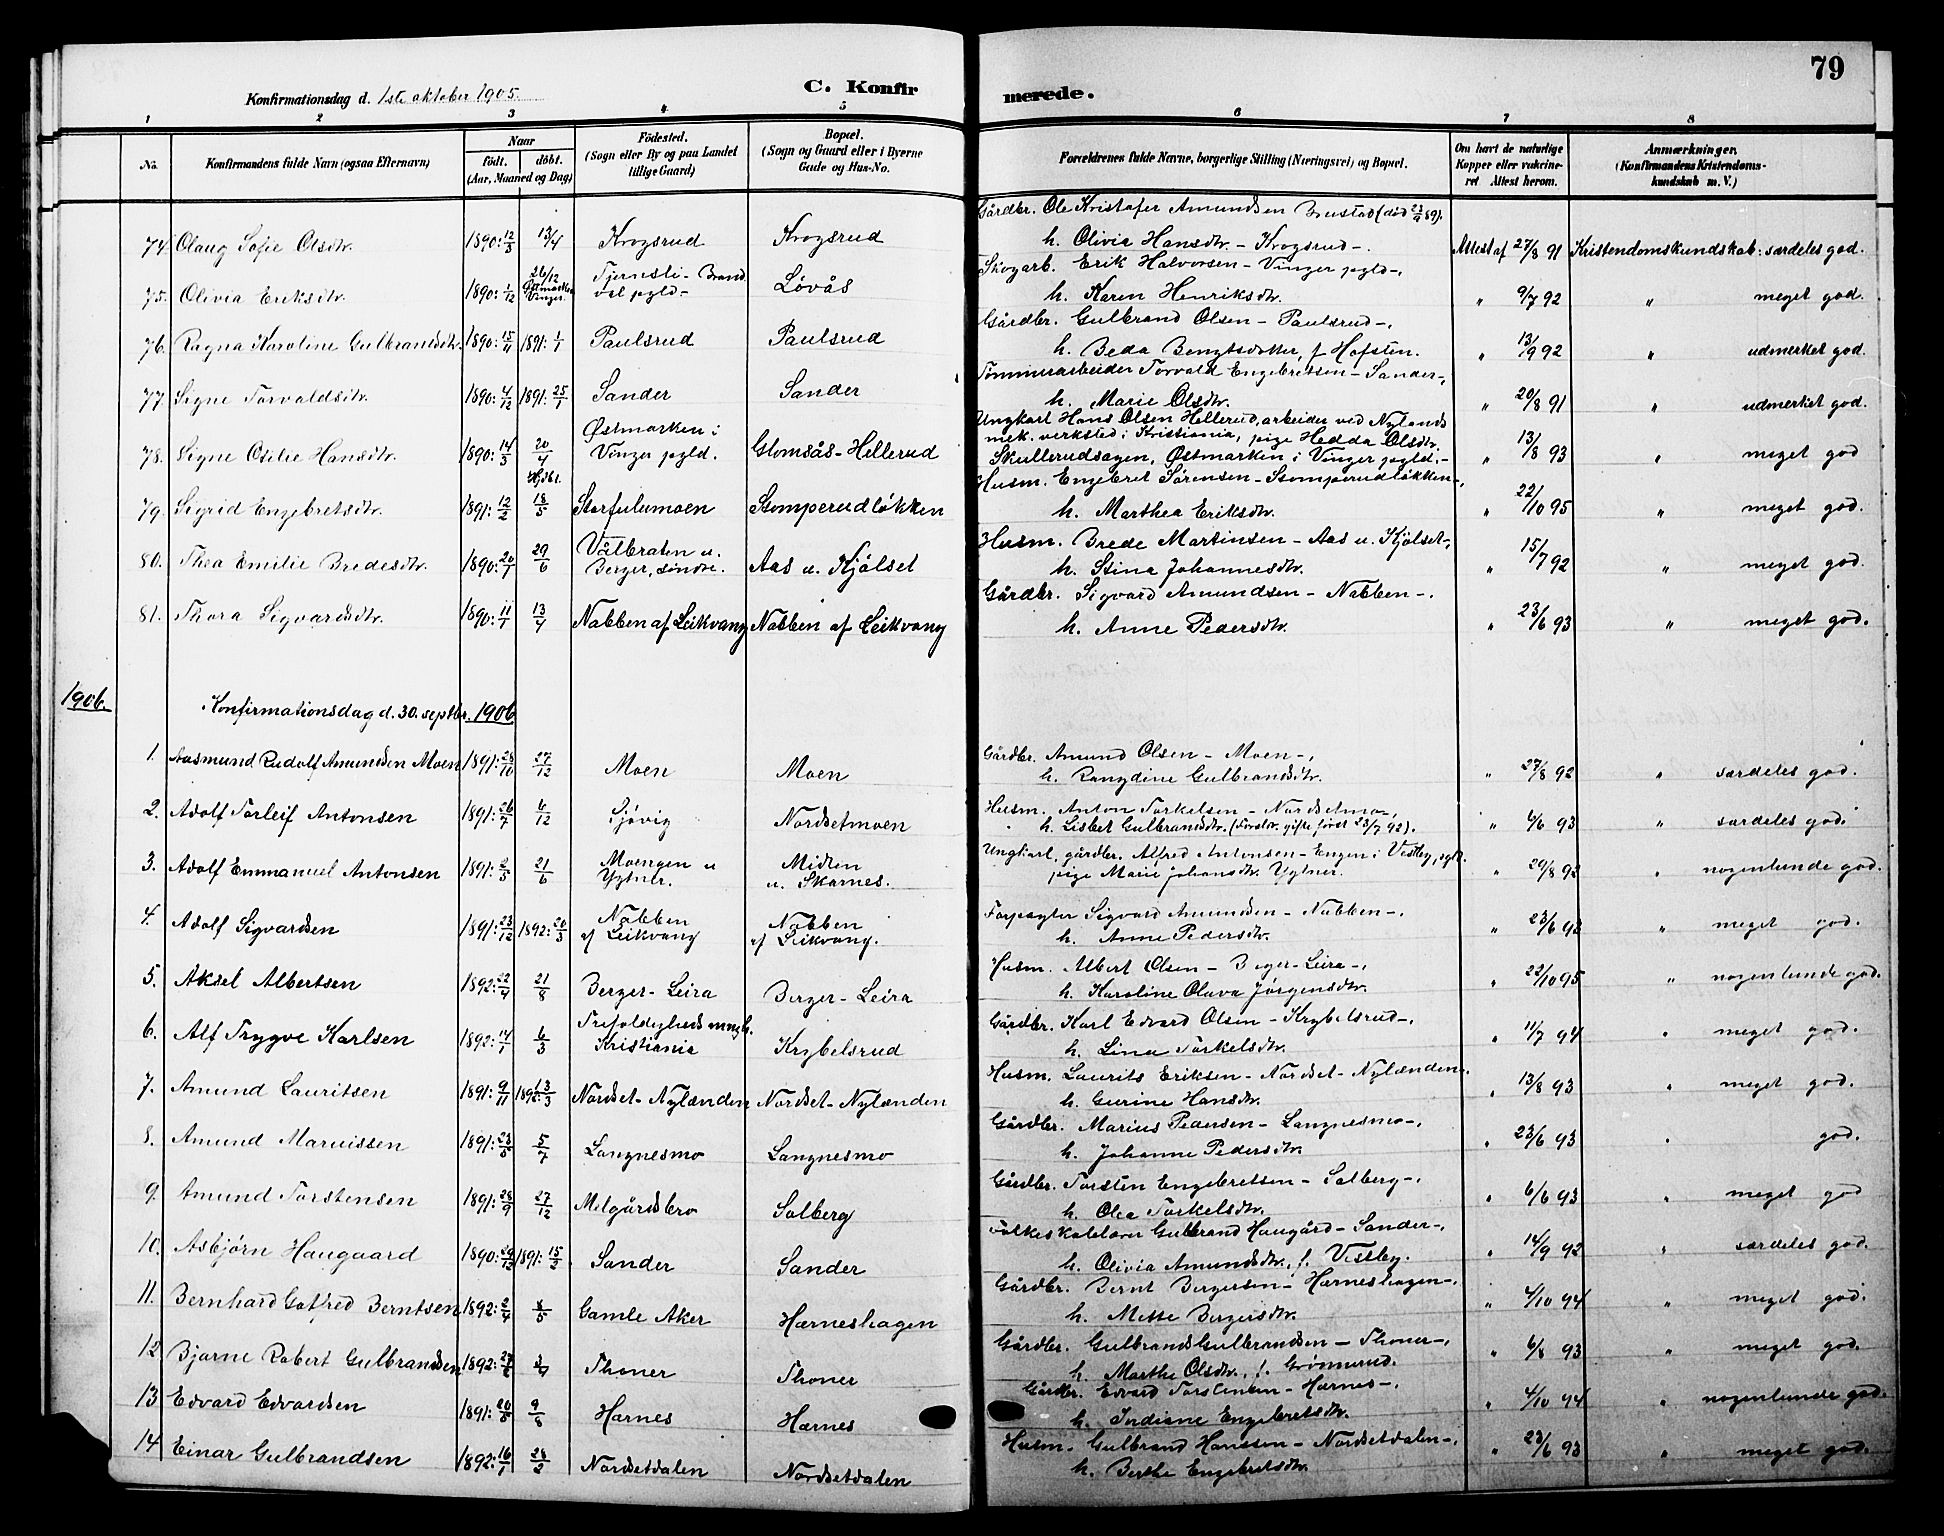 79
Konfirmationsdag d. 1ste oktober 1905.
C. Konfirmerede.
1 2 3 4 5 6 7 8
No. Konfirmandens fulde Navn (ogsaa Efternavn) Naar født. døbt. (Aar, Maaned og Dag) Fødested. (Sogn eller By og paa Landet tillige Gaard) Bopæl. (Sogn og Gaard eller i Byerne Gade og Hus-No. Forældrenes fulde Navne, borgerlige Stilling (Næringsvei) og Bopæl. Om havt de naturlige Kopper eller vakcineret Attest herom. Anmærkninger. (Konfirmandens Kristendomskundskab m. V.)
74. Olaug Sofie Olsdtr. 1890: 12/3 13/4 Krogsrud Krogsrud Gårdbr. Ole Kristofer Amundsen Brustad (død 23/9 89),
h. Olivia Hansdtr. - Krogsrud -. Attest af 27/8 91 Kristendomskundskab: særdeles god.
75. Olivia Eriksdtr. 1890: 1/12 26/12 Østmarken Vinger Tjernsli - Brandval pgld - Løvås Skogarb. Erik Halvorsen - Vinger pgld -,
h. Karen Henriksdtr. " 9/7 92 " meget god.
76. Ragna Karoline Gulbrandsdtr. 1890: 15/11 1891: 1/1 Paulsrud Paulsrud Gårdbr. Gulbrand Olsen - Paulsrud -,
h. Beda Bengtsdotter, f Hofsten. " 13/9 92 " udmerket god.
77. Signe Torvaldsdtr. 1890: 4/12 1891: 25/1 Sander Sander Tømmerarbeider Torvald Engebretsen - Sander -,
h. Marie Olsdtr. " 20/8 91 " udmerket god.
78. Signe Otilie Hansdtr. 1890: 14/3 20/4 Hjdbt. Østmarken i Vinger pgld. Glomsås - Hellerud Ungkarl Hans Olsen Hellerud, arbeider ved Nylands
mek. verksted i Kristiania, pige Hedda Olsdtr.
Skullerudsagen, Østmarken i Vinger pgld. - " 13/8 93 " meget god
79. Sigrid Engebretsdtr. 1891: 12/2 18/5 Storfulumoen Stomperudløkken Husm. Engebret Sørensen - Stomperudløkken -,
h. Marthea Eriksdtr. " 22/10 95 " meget god.
80. Thea Emilie Bredesdtr. 1890: 20/1 29/6 Vålbraten u. Berger, søndre. Aas u. Kjølset Husm. Brede Martinsen - Aas u. Kjølset -,
h. Stina Johannesdtr. " 15/7 92 " meget god.
81. Thora Sigvardsdtr. 1890: 11/1 13/4 Nabben af Leikvang Nabben af Leikvang Gårdbr. Sigvard Amundsen - Nabben -.
h. Anne Pedersdtr. " 23/6 93 " meget god.
1906.
Konfirmationsdag d. 30. septbr. 1906
1. Aasmund Rudolf Amundsen Moen 1891: 28/10 27/12 Moen Moen Gårdbr. Amund Olsen - Moen -,
h. Rangdine Gulbrandsdtr. " 27/8 92 " særdeles god.
2. Adolf Torleif Antonsen 1891: 26/7 6/12 Sjøvig Nordsetmoen Husm. Anton Torkelsen - Nordsetmo -,
h. Lisbet Gulbrandsdtr. (Forældr. gifte først 23/7 92). " 4/6 93 " særdeles god.
3. Adolf Emmanuel Antonsen 1891: 2/5 21/6 Moengen u Ugtner. Midlin u. Skarnes. Ungkarl, gårdbr. Alfred Antonsen - Engen i Vestby,
pige Marie Johansdtr. Ugtner. " 29/8 93 " nogenlunde god.
4. Adolf Sigvardsen 1891: 23/12 1892: 20/3 Nabben af Leikvang Nabben af Leikvang. Forpagter Sigvard Amundsen - Nabben -.
h. Anne Pedersdtr. " 23/6 93 " meget god.
5. Aksel Albertsen 1892: 22/4 21/8 Berger - Leira Berger - Leira Husm. Albert Olsen - Berger - Leira -,
h. Karoline Olava Jørgensdtr. " 22/10 95 " nogenlunde god.
6. Alf Trygve Karlsen 1892: 14/1 6/3 Trefoldigheds mngh. Kristiania Krybelsrud Gårdbr. Karl Edvard Olsen - Krybelsrud -,
h. Lina Torkelsdtr. " 11/7 94 " meget god.
7. Amund Lauritsen 1891: 9/11 1892: 13/3 Nordset - Nylænden Nordset - Nylænden Husm. Laurits Eriksen - Nordset - Nylænden -.
h. Gurine Hansdtr. " 13/8 93 " meget god.
8. Amund Mariussen 1891: 23/5 5/7 Langnesmo Langnesmo Gårdbr. Marius Pedersen - Langnesmo -,
h. Johanne Pedersdtr. " 23/6 93 " god.
9. Amund Torstensen 1891: 28/9 27/12 Melgårdsbro Solberg Gårdbr. Torsten Engebretsen - Solberg -,
h. Olea Torkelsdtr. " 6/6 93 " meget god
10. Asbjørn Haugaard 1890: 29/12 1891: 15/2 Sander Sander Folkeskolelærer Gulbrand Haugård - Sander -,
h. Olivia Amundsdtr., f. Vestby. " 14/9 92 " særdeles god.
11. Bernhard Gotfred Berntsen 1892: 2/4 8/5 Gamle Aker Hærneshagen Gårdbr. Bernt Bergersen - Hærneshagen -,
h. Mette Bergersdtr. " 4/10 94 " meget god.
12 Bjarne Robert Gulbrandsen 1892: Thoner Thoner Gårdbr. Gulbrand Gulbrandsen - Thoner -,
h. Marthe Olsdtr., f. Grønnerud. " 6/8 93 " meget god.
13 Edvard Edvardsen 1891: 20/5 9/8 Hærnes Hærnes Gårdbr. Edvard Torstensen - Hærnes -,
h. Indiane Engebretsdtr. " 4/10 94 " nogenlunde god.
14 Einar Gulbrandsen 1892: 16/1 28/2 Nordsetdalen Nordsetdalen Husm. Gulbrand Hansen - Nordsetdalen -,
h. Berthe Engebretsdtr. " 23/6 93 " meget god.